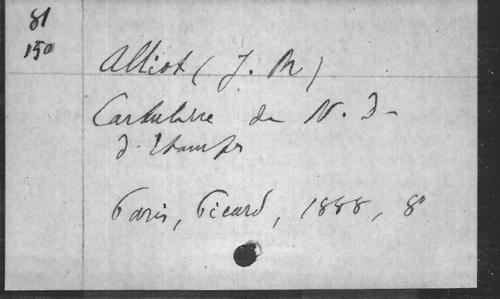 81
150
Alliot (J. M)
Cartulaire de N. D-
d'Etampes
Paris, Picard, 1888, 8°